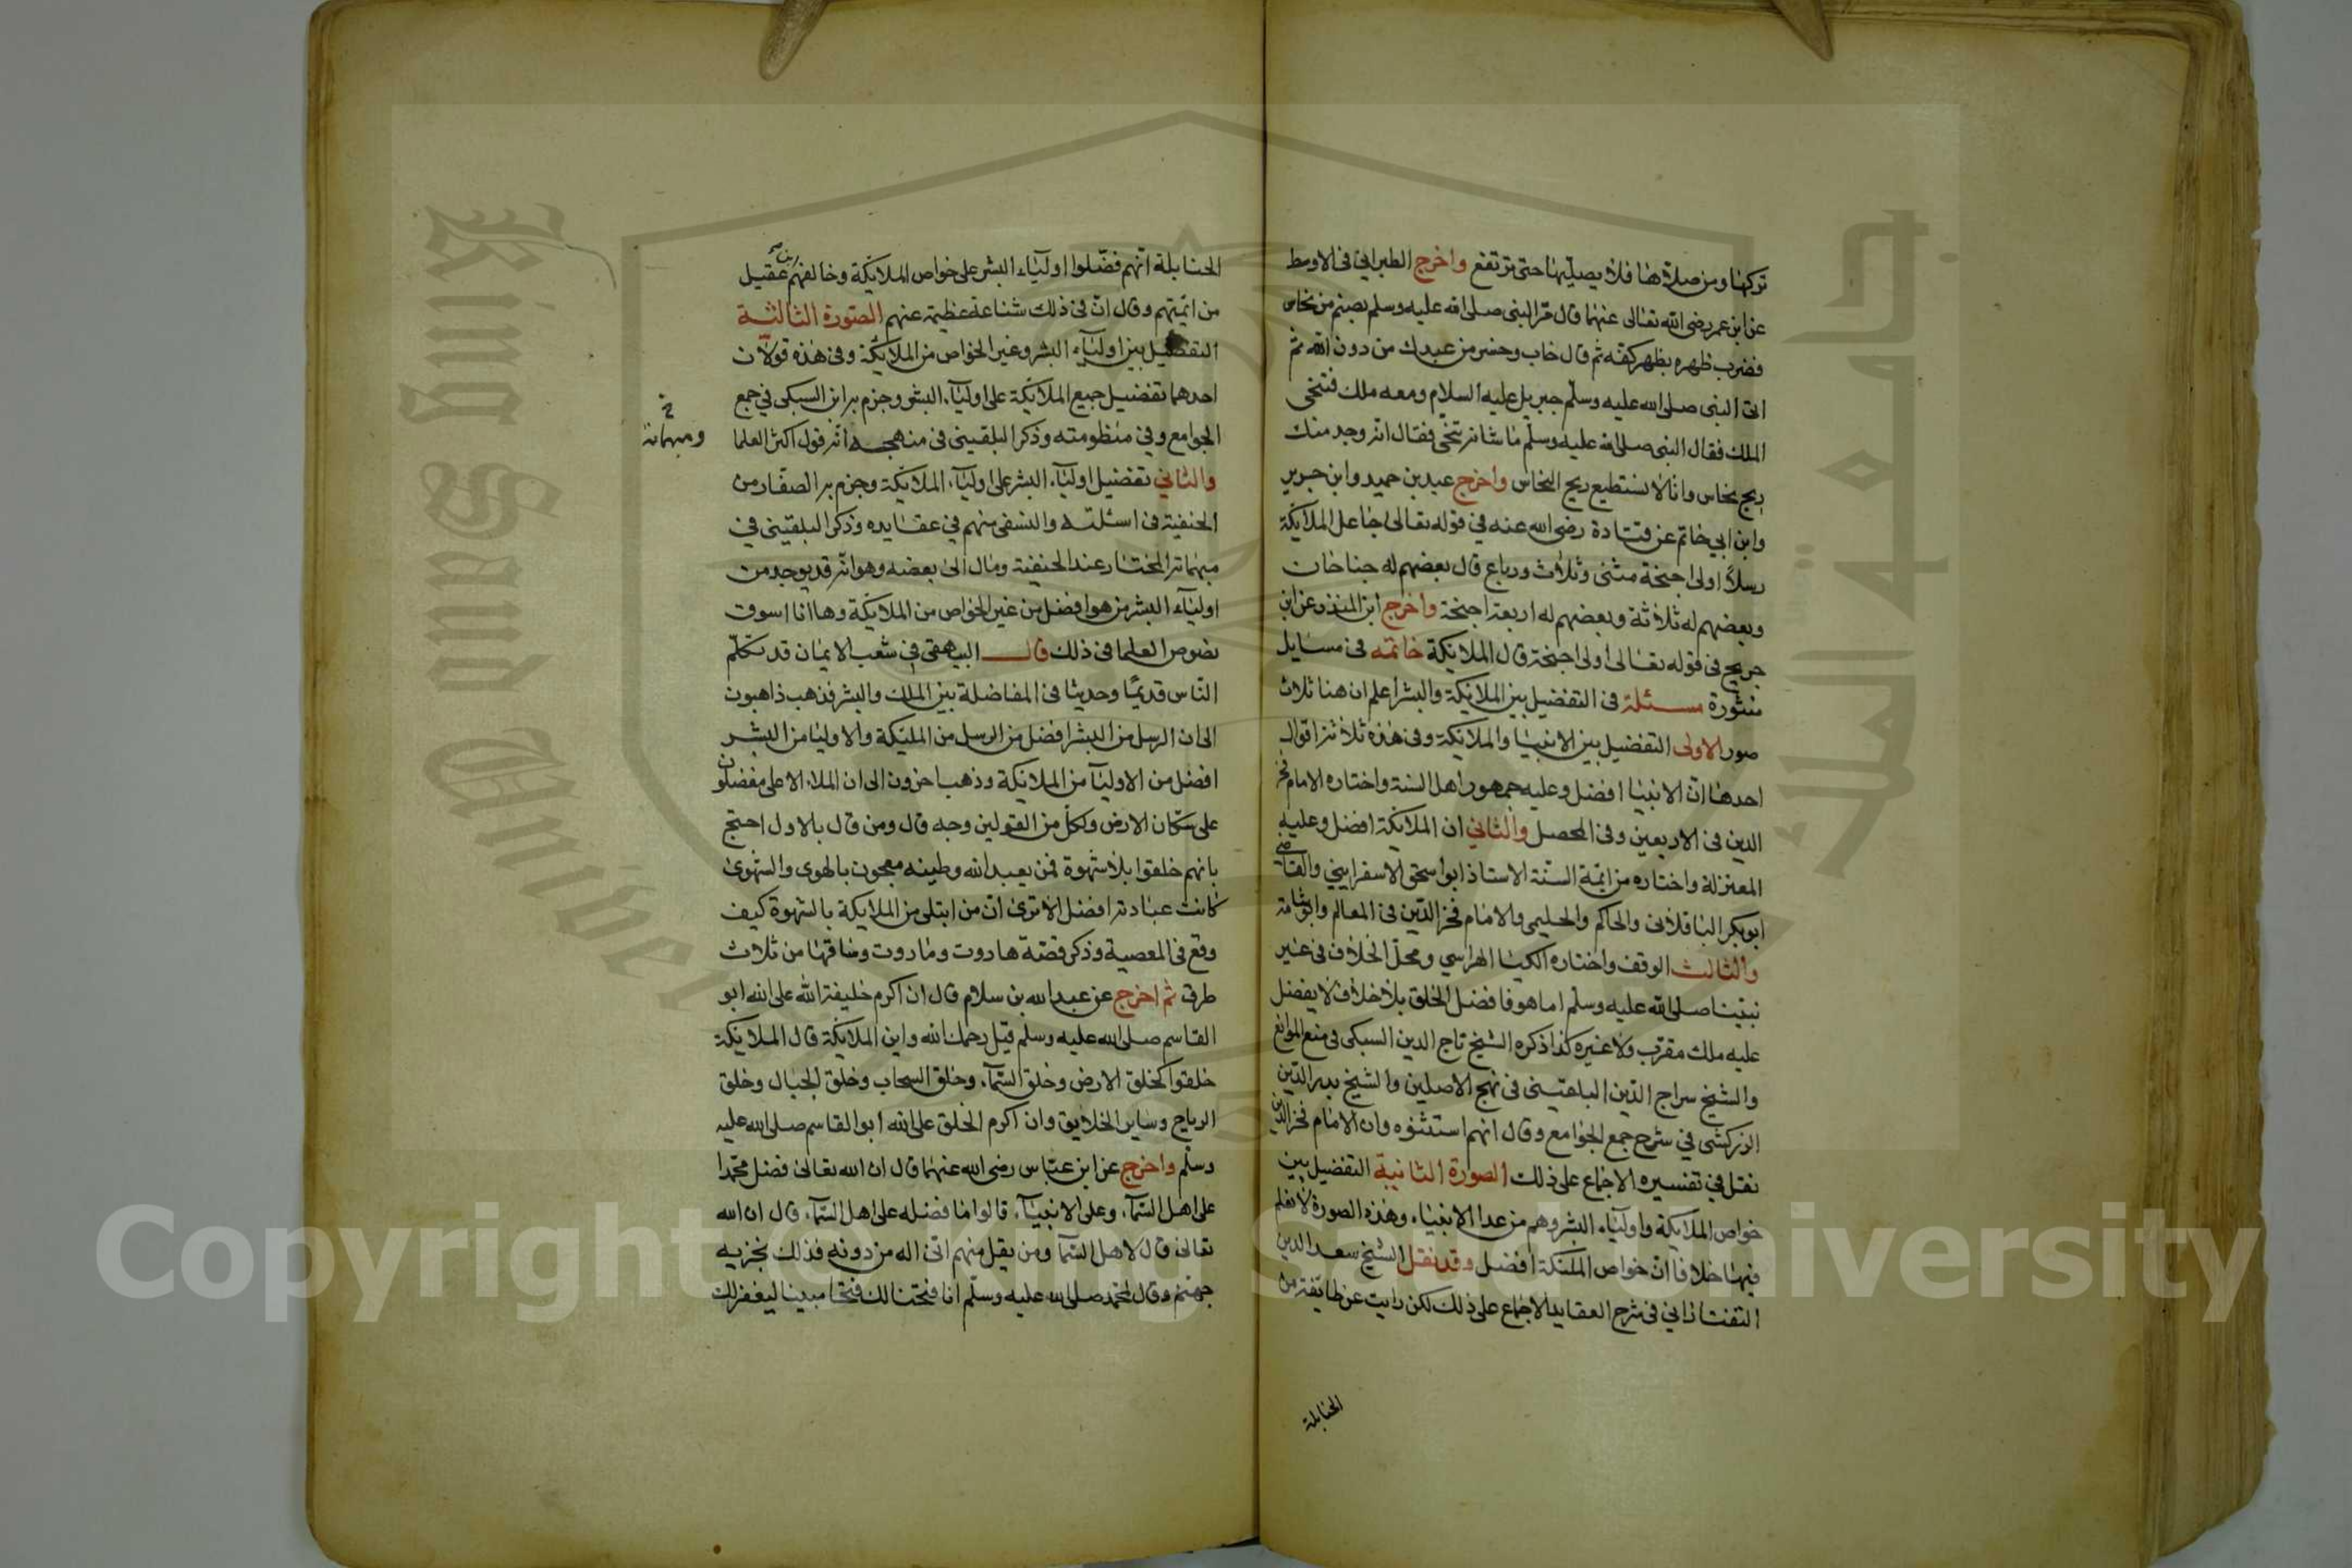 تركها ومن صلاة هنا فلا يصليها حتى ترتفع واخرج الطبراني في الاوسط
عن ابن عمر رضى الله تعالى عنهما قال مر النبى صلى الله عليه وسلم بصنم من نحاس
فضرب ظهره بظهر كفه ثم قال خاب وخسر من عبدك من دون الله ثم
اتى النبى صلى الله عليه وسلم جبريل عليه السلام ومعه ملك فتنحى
الملك فقال النبى صلى الله عليه وسلم ما شانه تنحى فقال انه وجد منك
ريح نحاس وانا لا نستطيع ريح النحاس واخرج عبد بن حميد وابن جرير
وابن ابي حاتم عن قتادة رضى الله عنه في قوله تعالى جاعل الملائكة
رسلا اولى اجنحة مثنى وثلاث ورباع قال بعضهم له جناحان
وبعضهم له ثلاثة وبعضهم له اربعة اجنحة واخرج ابن المنذر عن ابن
جريج في قوله تعالى اولى اجنحة قال الملايكة خاتمه في مسايل
منثورة مسئلة في التفضيل بين الملائكة والبشر اعلم ان هنا ثلاث
صور الاولى التفضيل بين الانبيا والملائكة وفي هذه ثلاثة اقوال
احدها ان الانبيا افضل وعليه جمهور اهل السنة واختاره الامام فخر
الدين في الاربعين وفى المحصل والثاني ان الملائكة افضل وعليه
المعتزلة واختاره من ائمة السنة الاستاذ ابو اسحق الاسفرايني والقاضى
ابو بكر الباقلانى والحاكم والحليمي والامام فخر الدين في المعالم وابو شامة
والثالث الوقف واختاره الكيا الهراسي ومحل الخلاف في غير
نبينا صلى الله عليه وسلم اما هو فافضل الخلق بلا خلاف لا يفضل
عليه ملك مقرب ولا غيره كذا ذكره الشيخ تاج الدين السبكى في منع الموانع
والشيخ سراج الدين البلقينى فى نهج الاصلين والشيخ بدر الدين
الزركشى في شرح جمع الجوامع وقال انهم استثنوه وان الامام فخر الدين
نقل في تفسيره الاجماع على ذلك الصورة الثانية التفضيل بين
خواص الملايكة واولياء البشر وهم من عدا الانبياء وهذه الصورة لا نعلم
فيها خلافا ان خواص الملئكة افضل وقد نقل الشيخ سعد الدين
التفتازاني في شرح العقايد الاجماع على ذلك لكن رايت عن طايفة من
الحنابلة
الحنابلة انهم فضلوا اولياء البشر على خواص الملائكة وخالفهم ابن عقيل
من ائمتهم وقال ان في ذلك شناعة عظيمة عنهم الصورة الثالثة
التفضيل بين اولياء البشر وغير الخواص من الملائكة وفى هذه قولان
احدهما تفضيل جميع الملائكة على اولياء البشر وجزم به ابن السبكى في جمع
الجوامع وفي منظومته وذكر البلقينى فى منهجه انه قول اكثر العلما
والثاني تفضيل اولياء البشر على اولياء الملائكة وجزم به الصفار من
الحنفية فى اسئلته والنسفى منهم في عقايده وذكر البلقينى في
مبهماته المختار عند الحنفية ومال الى بعضه وهو انه قد يوجد من
اولياء البشر من هو افضل من غير الخواص من الملائكة وها انا اسوق
نصوص العلما فى ذلك قال البيهقى في شعب الايمان قد تكلم
الناس قديما وحديثا فى المفاضلة بين الملك والبشر فذهب ذاهبون
الى ان الرسل من البشر افضل من الرسل من الملئكة والاوليا من البشر
افضل من الاوليا من الملائكة وذهب اخرون الى ان الملاء الاعلى مفضلون
على سكان الارض ولكل من القولين وجه قال ومن قال بالاول احتج
بانهم خلقوا بلا شهوة فمن يعبد الله وطينه معجون بالهوى والشهوى
كانت عبادته افضل الا ترى ان من ابتلى من الملايكة بالشهوة كيف
وقع فى المعصية وذكر قصة هاروت وماروت وساقها من ثلاث
طرق ثم اخرج عن عبد الله بن سلام قال ان اكرم خليفة الله على الله ابو
القاسم صلى الله عليه وسلم قيل رحمك الله واين الملائكة قال الملايكة
خلقوا كخلق الارض وخلق السماء وخلق السحاب وخلق الجبال وخلق
الرياح وساير الخلايق وان اكرم الخلق على الله ابو القاسم صلى الله عليه
وسلم واخرج عن ابن عباس رضى الله عنهما قال ان الله تعالى فضل محمدا
على اهل السماء وعلى الانبياء قالوا ما فضله على اهل السماء قال ان الله
تعالى قال لاهل السما ومن يقل منهم انى اله من دونه فذلك نجزيه
جهنم وقال لمحمد صلى الله عليه وسلم انا فتحنا لك فتحا مبينا ليغفر لك
ومبهماته
Copyright © King Saud University
King Saud University
جامعة الملك